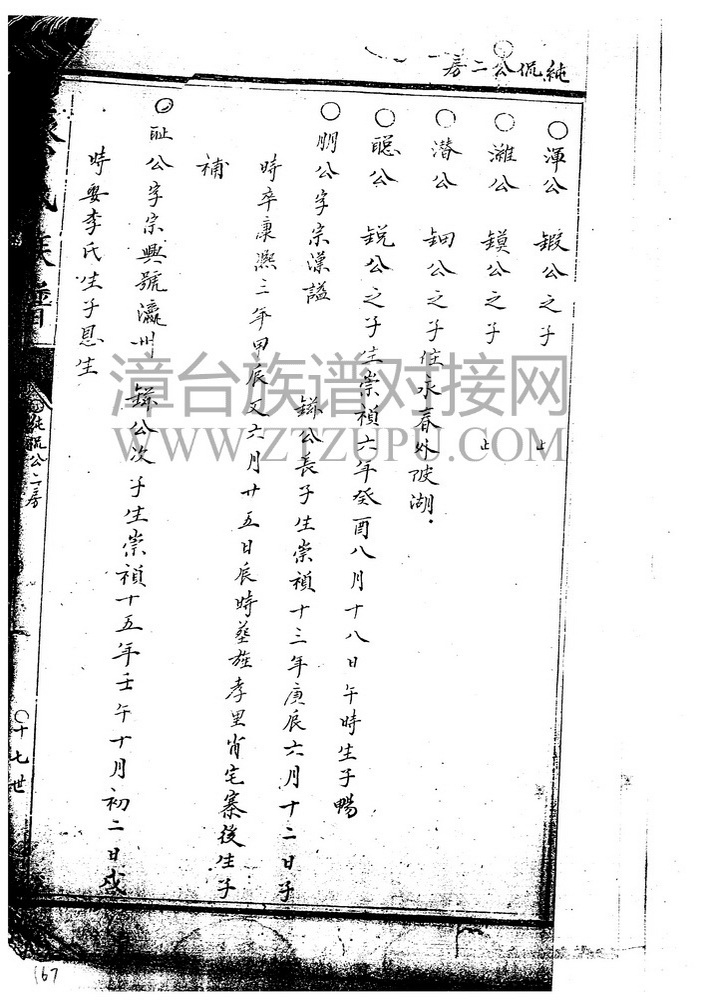 純侃公二房
〇渾公 鍛公之子 止
〇濰公 鏌公之子 止
〇潜公 鈿公之子住永春外陂湖.
〇聰公 銳公之子生崇禎六年癸酉八月十八日午時生子暢
〇朋公字宗漢謚 鎵公長子生崇禎十三年庚辰六月十二日子
時卒康熙三年甲辰又六月廿五日辰時墓旌孝里肖宅寨後生子
補
〇耻公字宗興號瀛州 鎵公次子生崇禎十五年壬午十月初二日戍
時娶李氏生子恩生
氏族譜
純侃公二房
〇十七世
漳台族谱对接网
WWW.ZTZUPU.COM
167